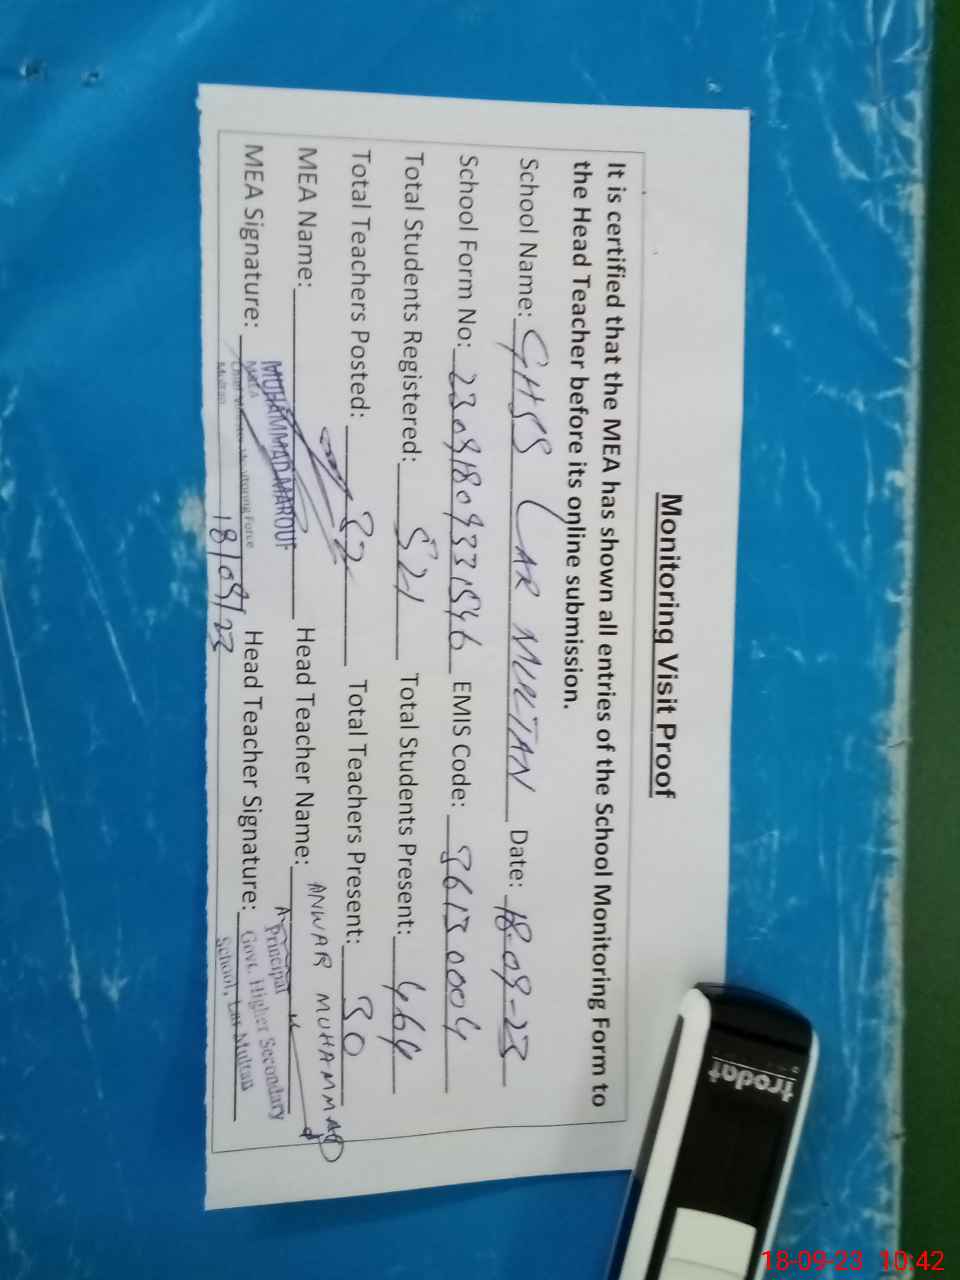 Monitoring Visit Proof
It is certified that the MEA has shown all entries of the School Monitoring Form to
the Head Teacher before its online submission.
School Name: GHSS LAR MULTAN Date: 18-09-23
School Form No: EMIS Code: 36130004
Total Students Registered: 521 Total Students Present: 464
Total Teachers Posted: 32 Total Teachers Present: 30
MEA Name: Head Teacher Name: ANWAR MUHAMMAD
MUHAMMAD MAROUF
MEA Signature: Head Teacher Signature:
MEA
Monitoring Force
Multan
18/09/23
Principal
Govt. Higher Secondary
School, Lar Multan
trodat
18-09-23 10:42